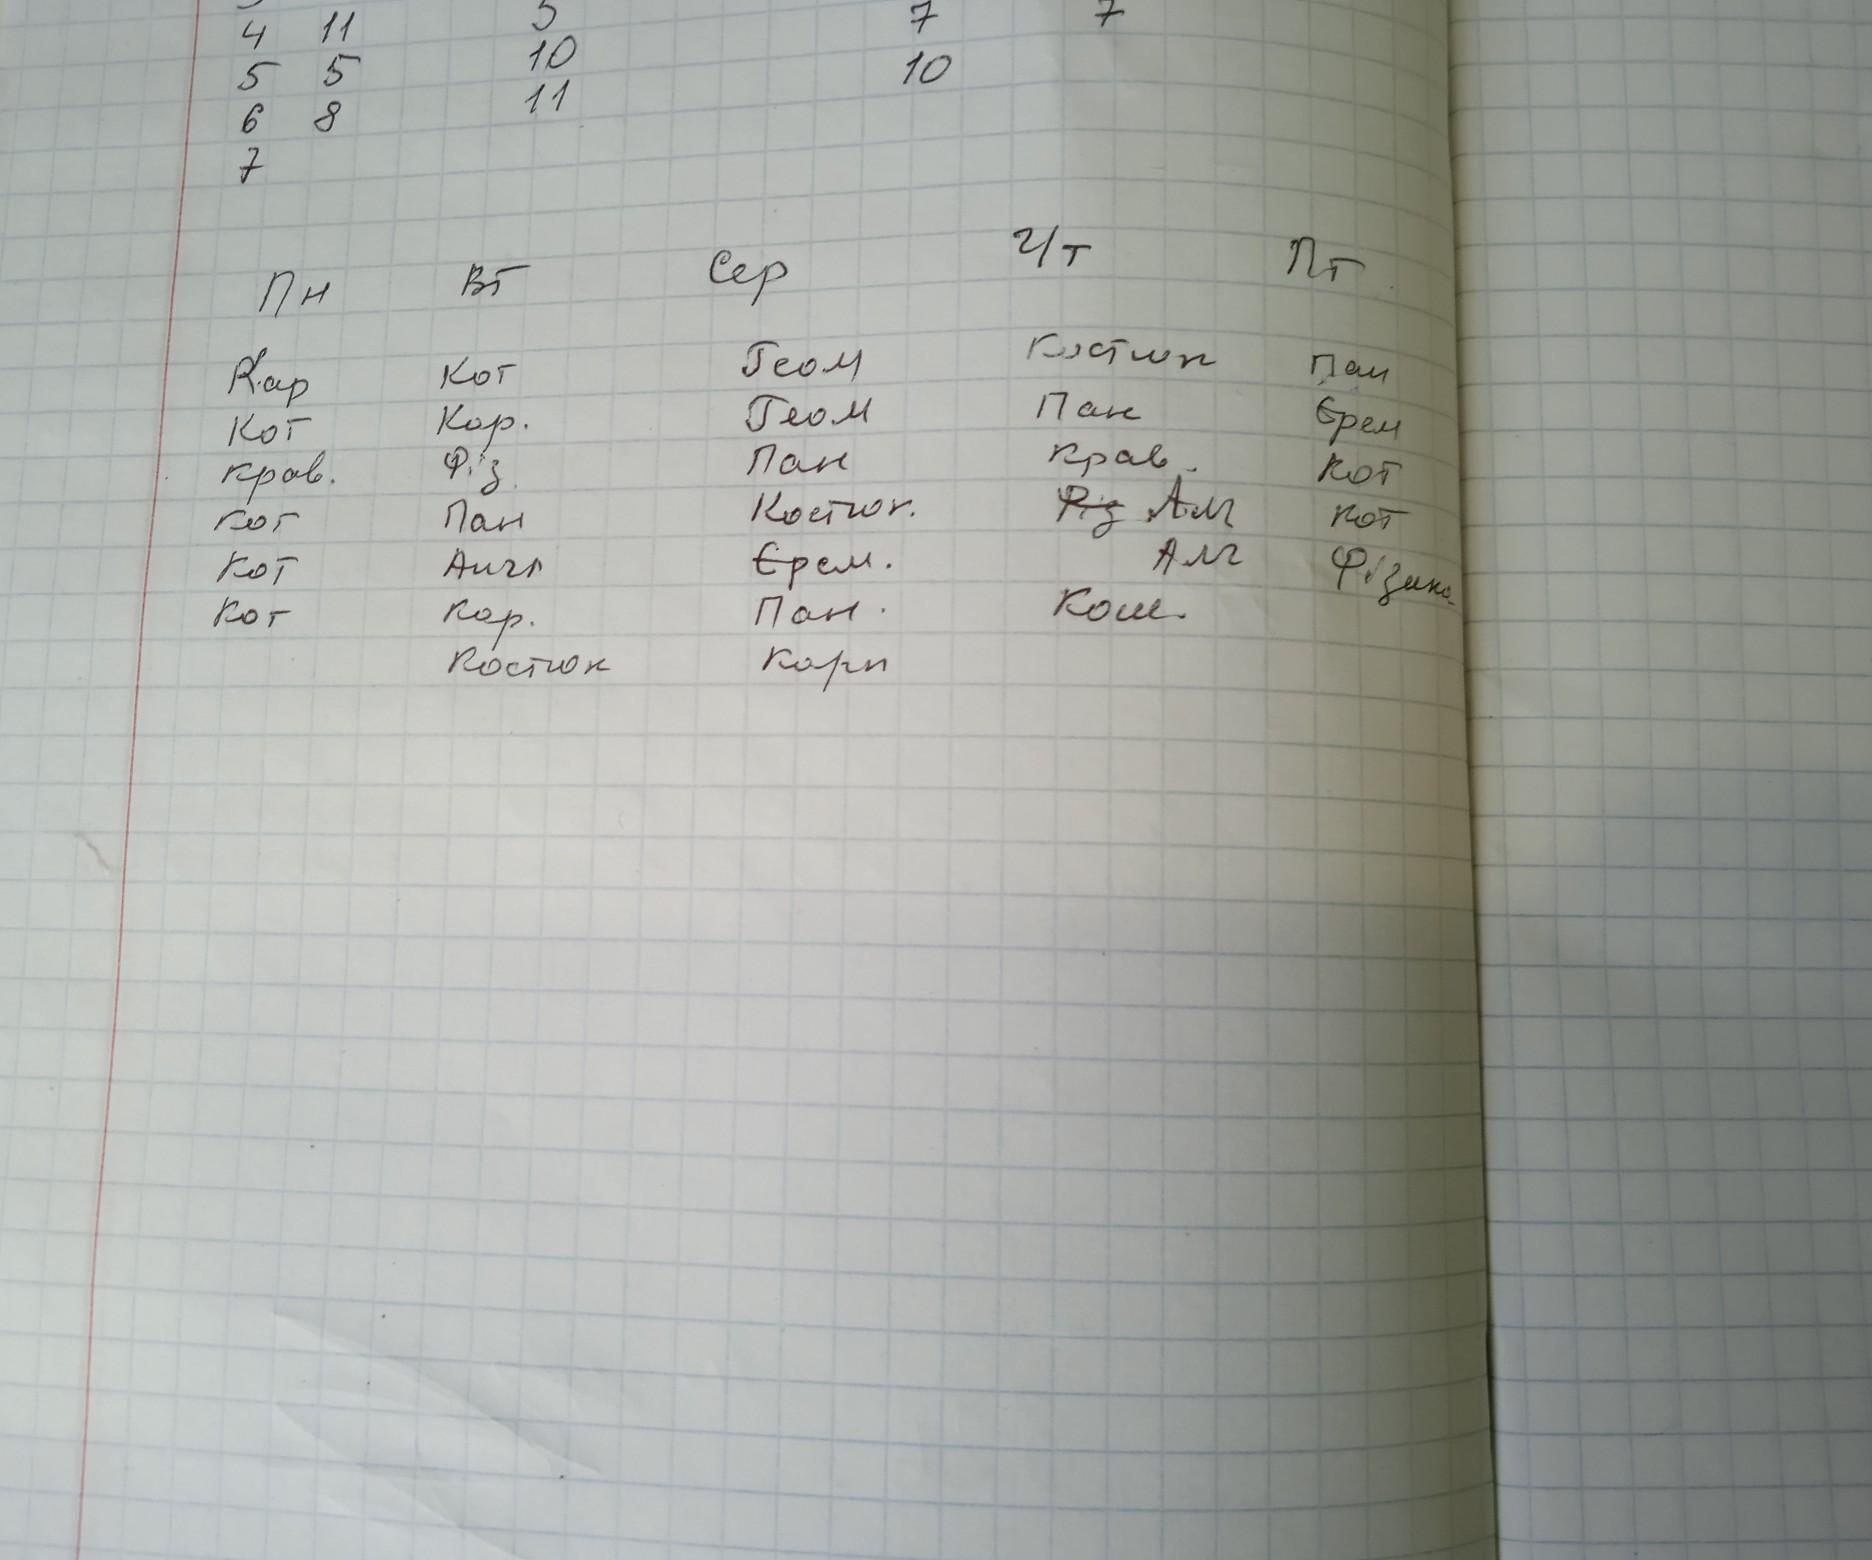 4 11 5 7 7
5 5 10 10
6 8 11
7
Пн Вт Сер Ч/т Пт
Кар Кот Геом Костюк Пан
Кот Кар. Геом Пан Єрем
Крав. Фіз Пан Крав. Кот
Кот Пан Костюк. Фіз Алг Кот
Кот Англ Єрем. Алг Фізика
Кот Кар. Пан. Кош.
Костюк Карп